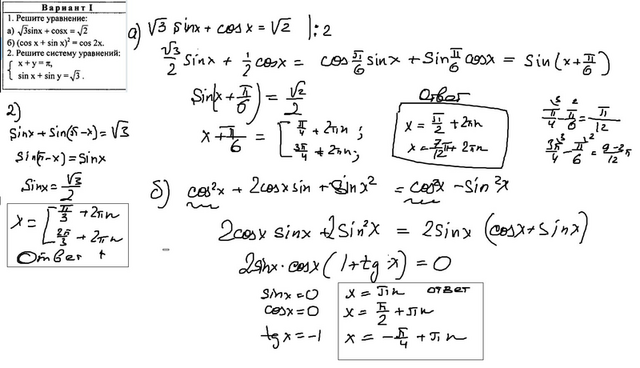 Вариант I
1. Решите уравнение:
а) √3 sinx + cosx = √2
б) (cos x + sin x)² = cos 2x.
2. Решите систему уравнений:
{ x + y = π,
sin x + sin y = √3.
а) √3 sinx + cosx = √2 |:2
√3/2 sinx + 1/2 cosx = cos π/6 sinx + sin π/6 cosx = sin(x + π/6)
sin(x + π/6) = √2/2
x + π/6 = [ π/4 + 2πn;
3π/4 + 2πn;
Ответ
x = π/12 + 2πn
x = 7/12 π + 2πn
π/4 - π/6 = π/12
3π/4 - π/6 = 9-2/12 π
2)
sinx + sin(π-x) = √3
sin(π-x) = sinx
sinx = √3/2
x = [ π/3 + 2πn
2π/3 + 2πn
Ответ
б) cos²x + 2cosx sin + sinx² = cos²x - sin²x
2cosx sinx + 2sin²x = 2sinx (cosx + sinx)
2sinx · cosx (1 + tg x) = 0
sinx = 0
cosx = 0
tgx = -1
x = πn ответ
x = π/2 + πn
x = -π/4 + πn